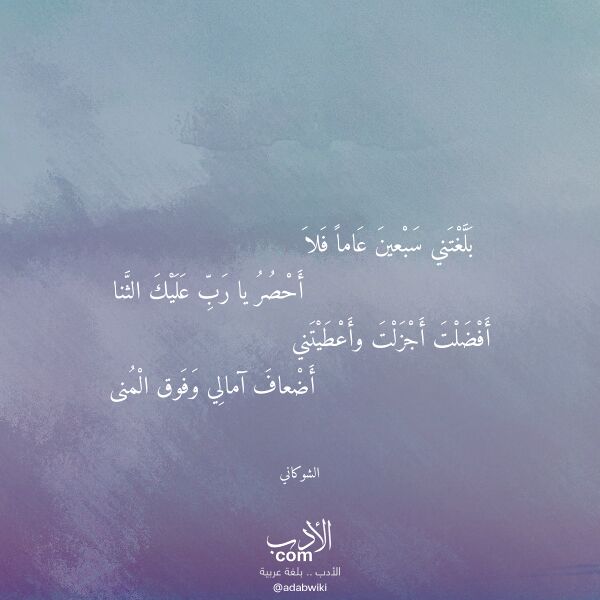 بَلَّغْتَني سَبْعينَ عَاماً فَلاَ
أَحْصُرُ يا رَبِّ عَلَيْكَ الثَّنا
أَفْضَلْتَ أَجْزَلْتَ وأَعْطَيْتَني
أَضْعافَ آمالِي وَفَوق الْمُنى
الشوكاني
الأدب
com
الأدب .. بلغة عربية
@adabwiki